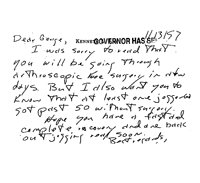 Dear George,
KENNE GOVERNOR HAS 11/3/97
I was sorry to read that
you will be going through
arthroscopic knee surgery in a few
days. But I also want you to
know that at least one jogger
got past 50 without surgery.
Hope you have a fast and
complete recovery and are back
out jogging real soon.
Best regards,